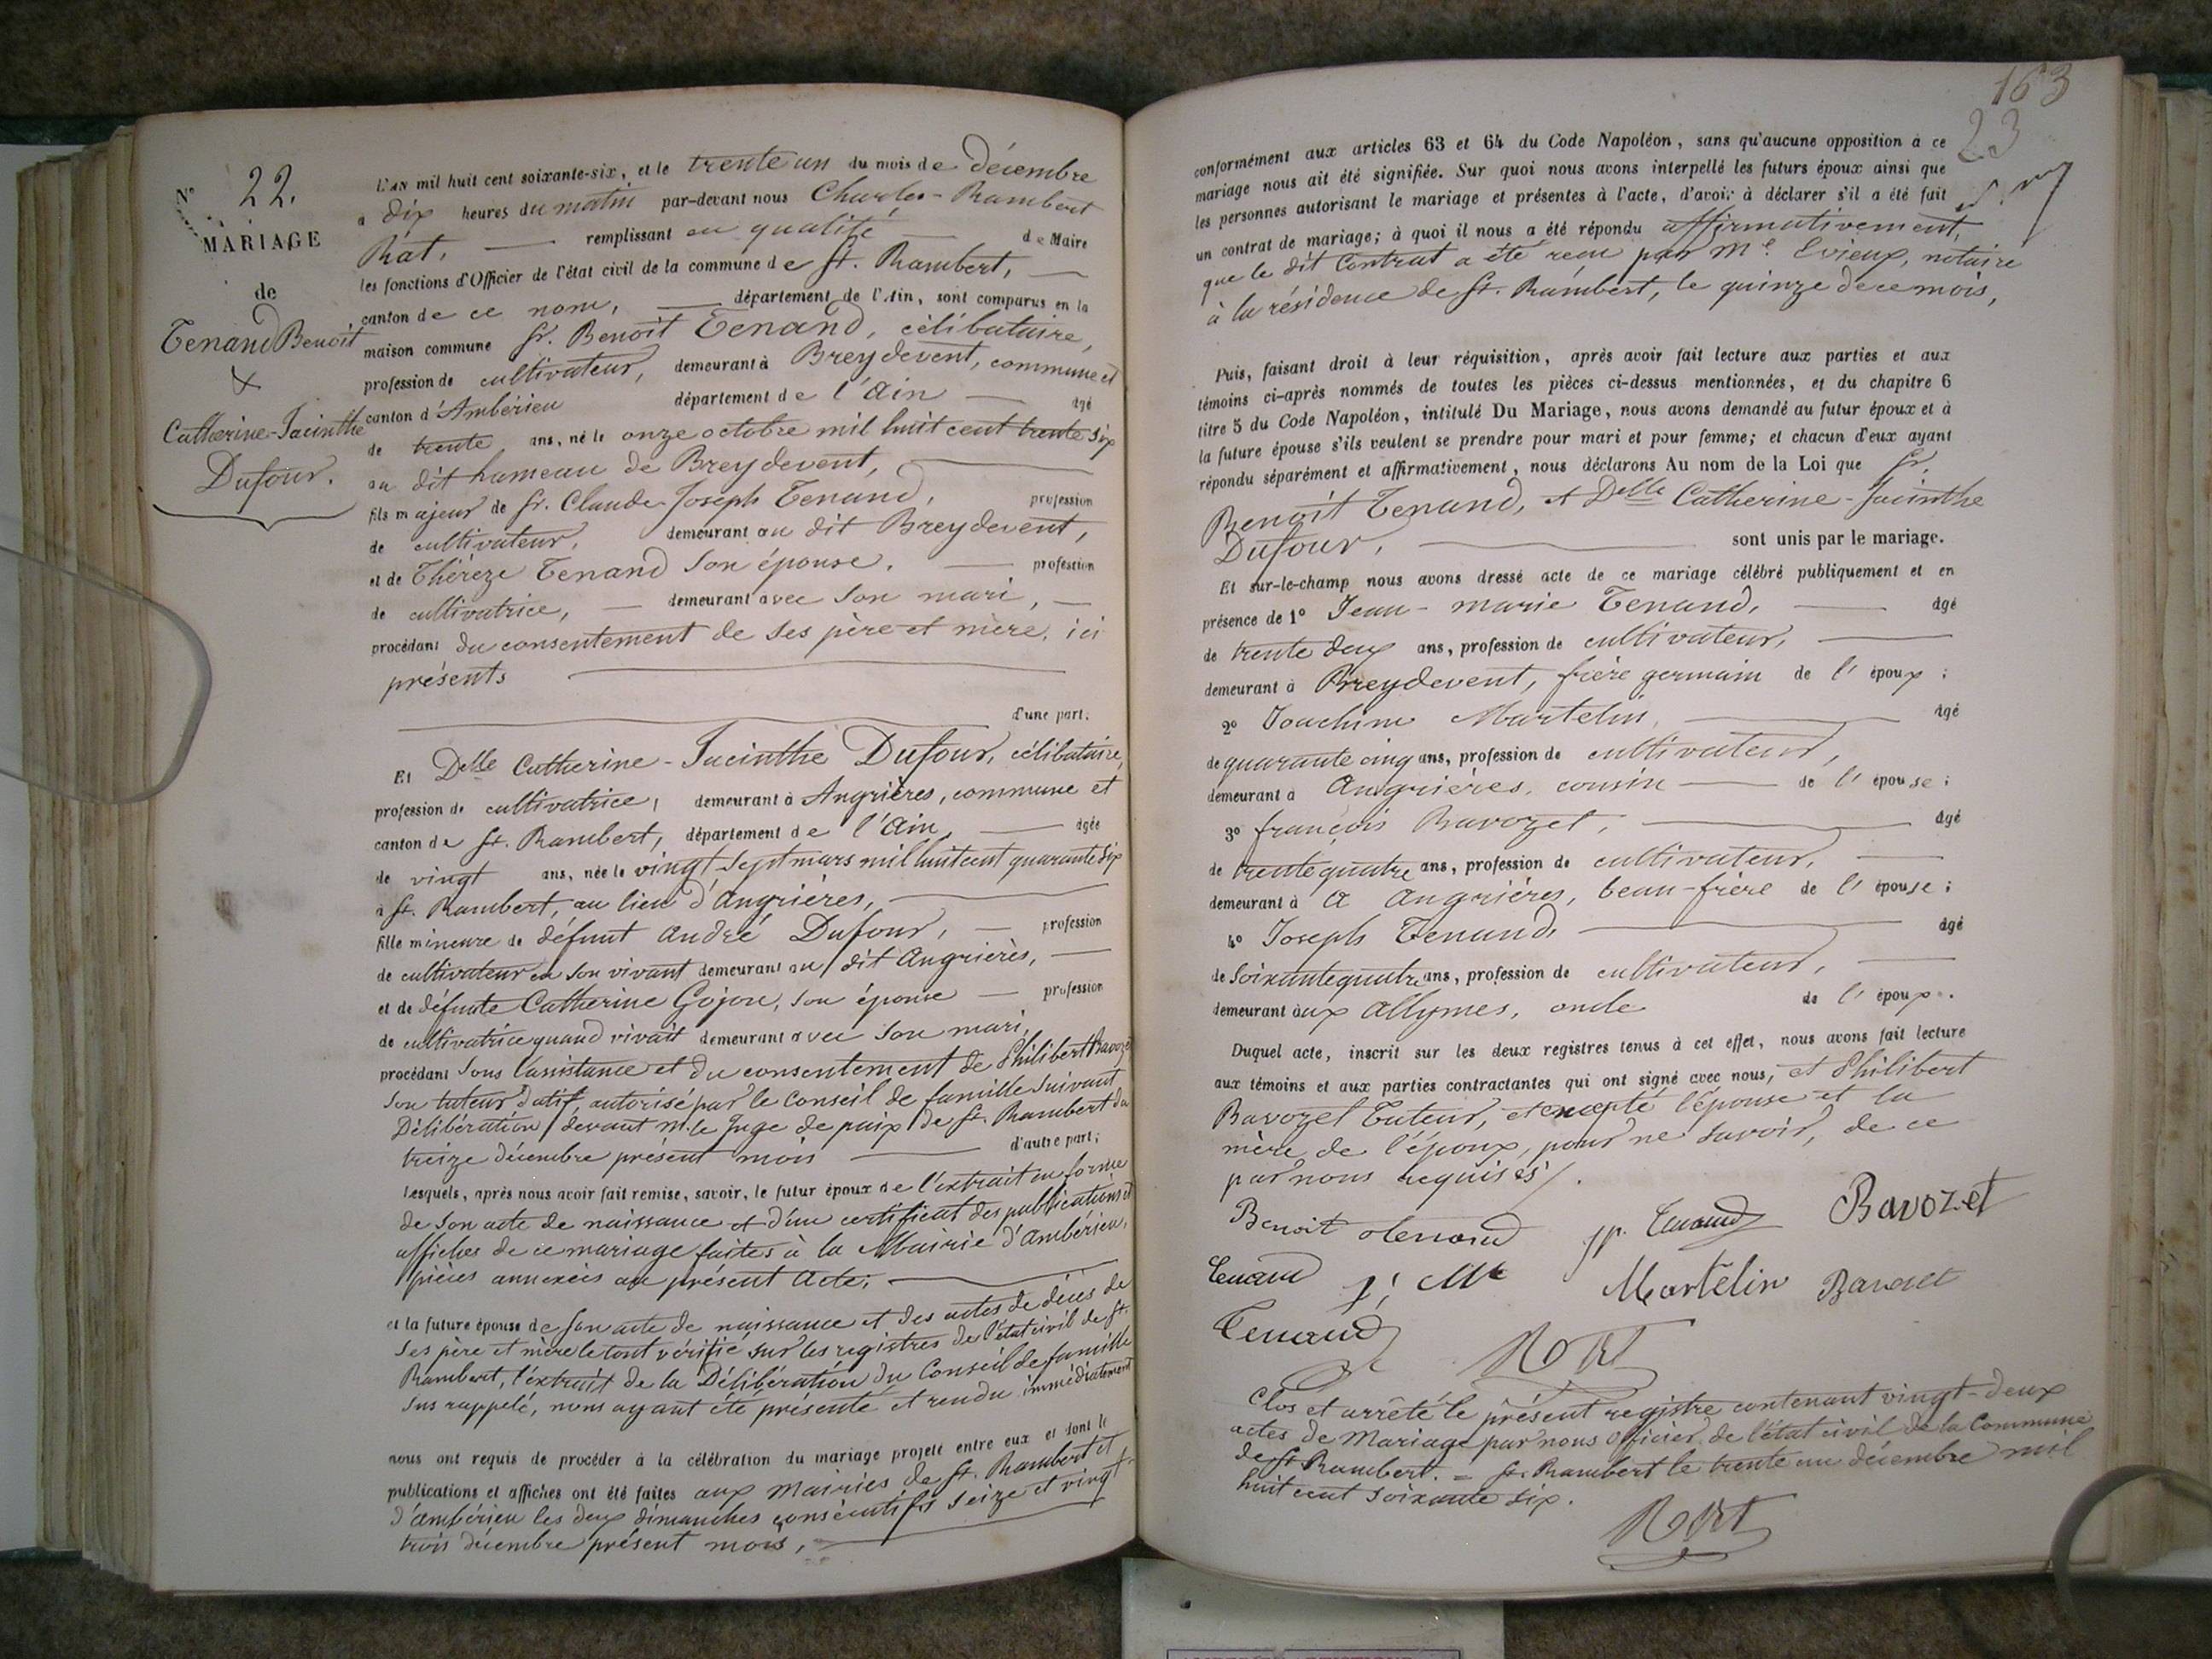 N° 22.
MARIAGE
de
Tenand Benoit
&
Catherine-Jacinthe
Dufour.
L'AN mil huit cent soixante-six, et le trente un du mois de décembre
a dix heures du matin par-devant nous Charles-Rambert
Rat, remplissant en qualité de Maire
les fonctions d'Officier de l'état civil de la commune de St. Rambert,
canton de ce nom, département de l'Ain, sont comparus en la
maison commune Sr. Benoit Tenand, célibataire,
profession de cultivateur, demeurant à Breydevent, commune et
canton d'Ambérieu département de l'Ain âgé
de trente ans, né le onze octobre mil huit cent trente six
au dit hameau de Breydevent,
fils majeur de Sr. Claude-Joseph Tenand, profession
de cultivateur, demeurant au dit Breydevent,
et de Thérèze Tenand son épouse, profession
de cultivatrice, demeurant avec son mari,
procédant du consentement de ses père et mère, ici
présents
d'une part;
Et Delle Catherine-Jacinthe Dufour, célibataire,
profession de cultivatrice, demeurant à Angrières, commune et
canton de St. Rambert, département de l'Ain, âgée
de vingt ans, née le vingt sept mars mil huit cent quarante six
à St. Rambert, au lieu d'Angrières,
fille mineure de défunt André Dufour, profession
de cultivateur en son vivant demeurant au dit Angrières,
et de défunte Catherine Gojon, son épouse profession
de cultivatrice quand vivait demeurant avec son mari,
procédant sous l'assistance et du consentement de Philibert Bavozet
son tuteur datif, autorisé par le Conseil de famille suivant
Délibération devant Mr. le Juge de paix de St. Rambert du
treize décembre présent mois d'autre part;
Lesquels, après nous avoir fait remise, savoir, le futur époux de l'extrait en forme
de son acte de naissance et d'un certificat des publications et
affiches de ce mariage faites à la Mairie d'Ambérieu,
pièces annexées au présent Acte;
et la future épouse de son acte de naissance et des actes de décès de
ses père et mère le tout vérifié sur les registres de l'état civil de St.
Rambert, l'extrait de la Délibération du Conseil de famille
sus rappelé, nous ayant été présenté et rendu immédiatement
nous ont requis de procéder à la célébration du mariage projeté entre eux et dont les
publications et affiches ont été faites aux Mairies de St. Rambert et
d'ambérieu les deux dimanches consécutifs seize et vingt-
trois décembre présent mois,
163
23
conformément aux articles 63 et 64 du Code Napoléon, sans qu'aucune opposition à ce
mariage nous ait été signifiée. Sur quoi nous avons interpellé les futurs époux ainsi que
les personnes autorisant le mariage et présentes à l'acte, d'avoir à déclarer s'il a été fait
un contrat de mariage; à quoi il nous a été répondu affirmativement,
que le dit Contrat a été reçu par Me. Evieux, notaire
à la résidence de St. Rambert, le quinze de ce mois,
Puis, faisant droit à leur réquisition, après avoir fait lecture aux parties et aux
témoins ci-après nommés de toutes les pièces ci-dessus mentionnées, et du chapitre 6
titre 5 du Code Napoléon, intitulé Du Mariage, nous avons demandé au futur époux et à
la future épouse s'ils veulent se prendre pour mari et pour femme; et chacun d'eux ayant
répondu séparément et affirmativement, nous déclarons Au nom de la Loi que Sr.
Benoit Tenand, et Delle Catherine-Jacinthe
Dufour, sont unis par le mariage.
Et sur-le-champ nous avons dressé acte de ce mariage célébré publiquement et en
présence de 1° Jean-marie Tenand, âgé
de trente deux ans, profession de cultivateur,
demeurant à Breydevent, frère germain de l'époux;
2° Joachim Martelin, âgé
de quarante cinq ans, profession de cultivateur,
demeurant à Angrières, cousin de l'épouse;
3° françois Bavozet, âgé
de trente quatre ans, profession de cultivateur,
demeurant à A Angrières, beau-frère de l'épouse;
4° Joseph Tenand, âgé
de soixante quatre ans, profession de cultivateur,
demeurant aux Allymes, oncle de l'époux.
Duquel acte, inscrit sur les deux registres tenus à cet effet, nous avons fait lecture
aux témoins et aux parties contractantes qui ont signé avec nous, et Philibert
Bavozet Tuteur, et excepté l'épouse et la
mère de l'époux, pour ne savoir, de ce
par nous requises/.
Benoit tenand Tenand Bavozet
Tenand Martelin Bavozet
Tenand Rat
Clos et arrêté le présent registre contenant vingt-deux
actes de Mariage par nous Officier de l'état civil de la Commune
de St Rambert. = St. Rambert le trente un décembre mil
huit cent soixante six.
Rat